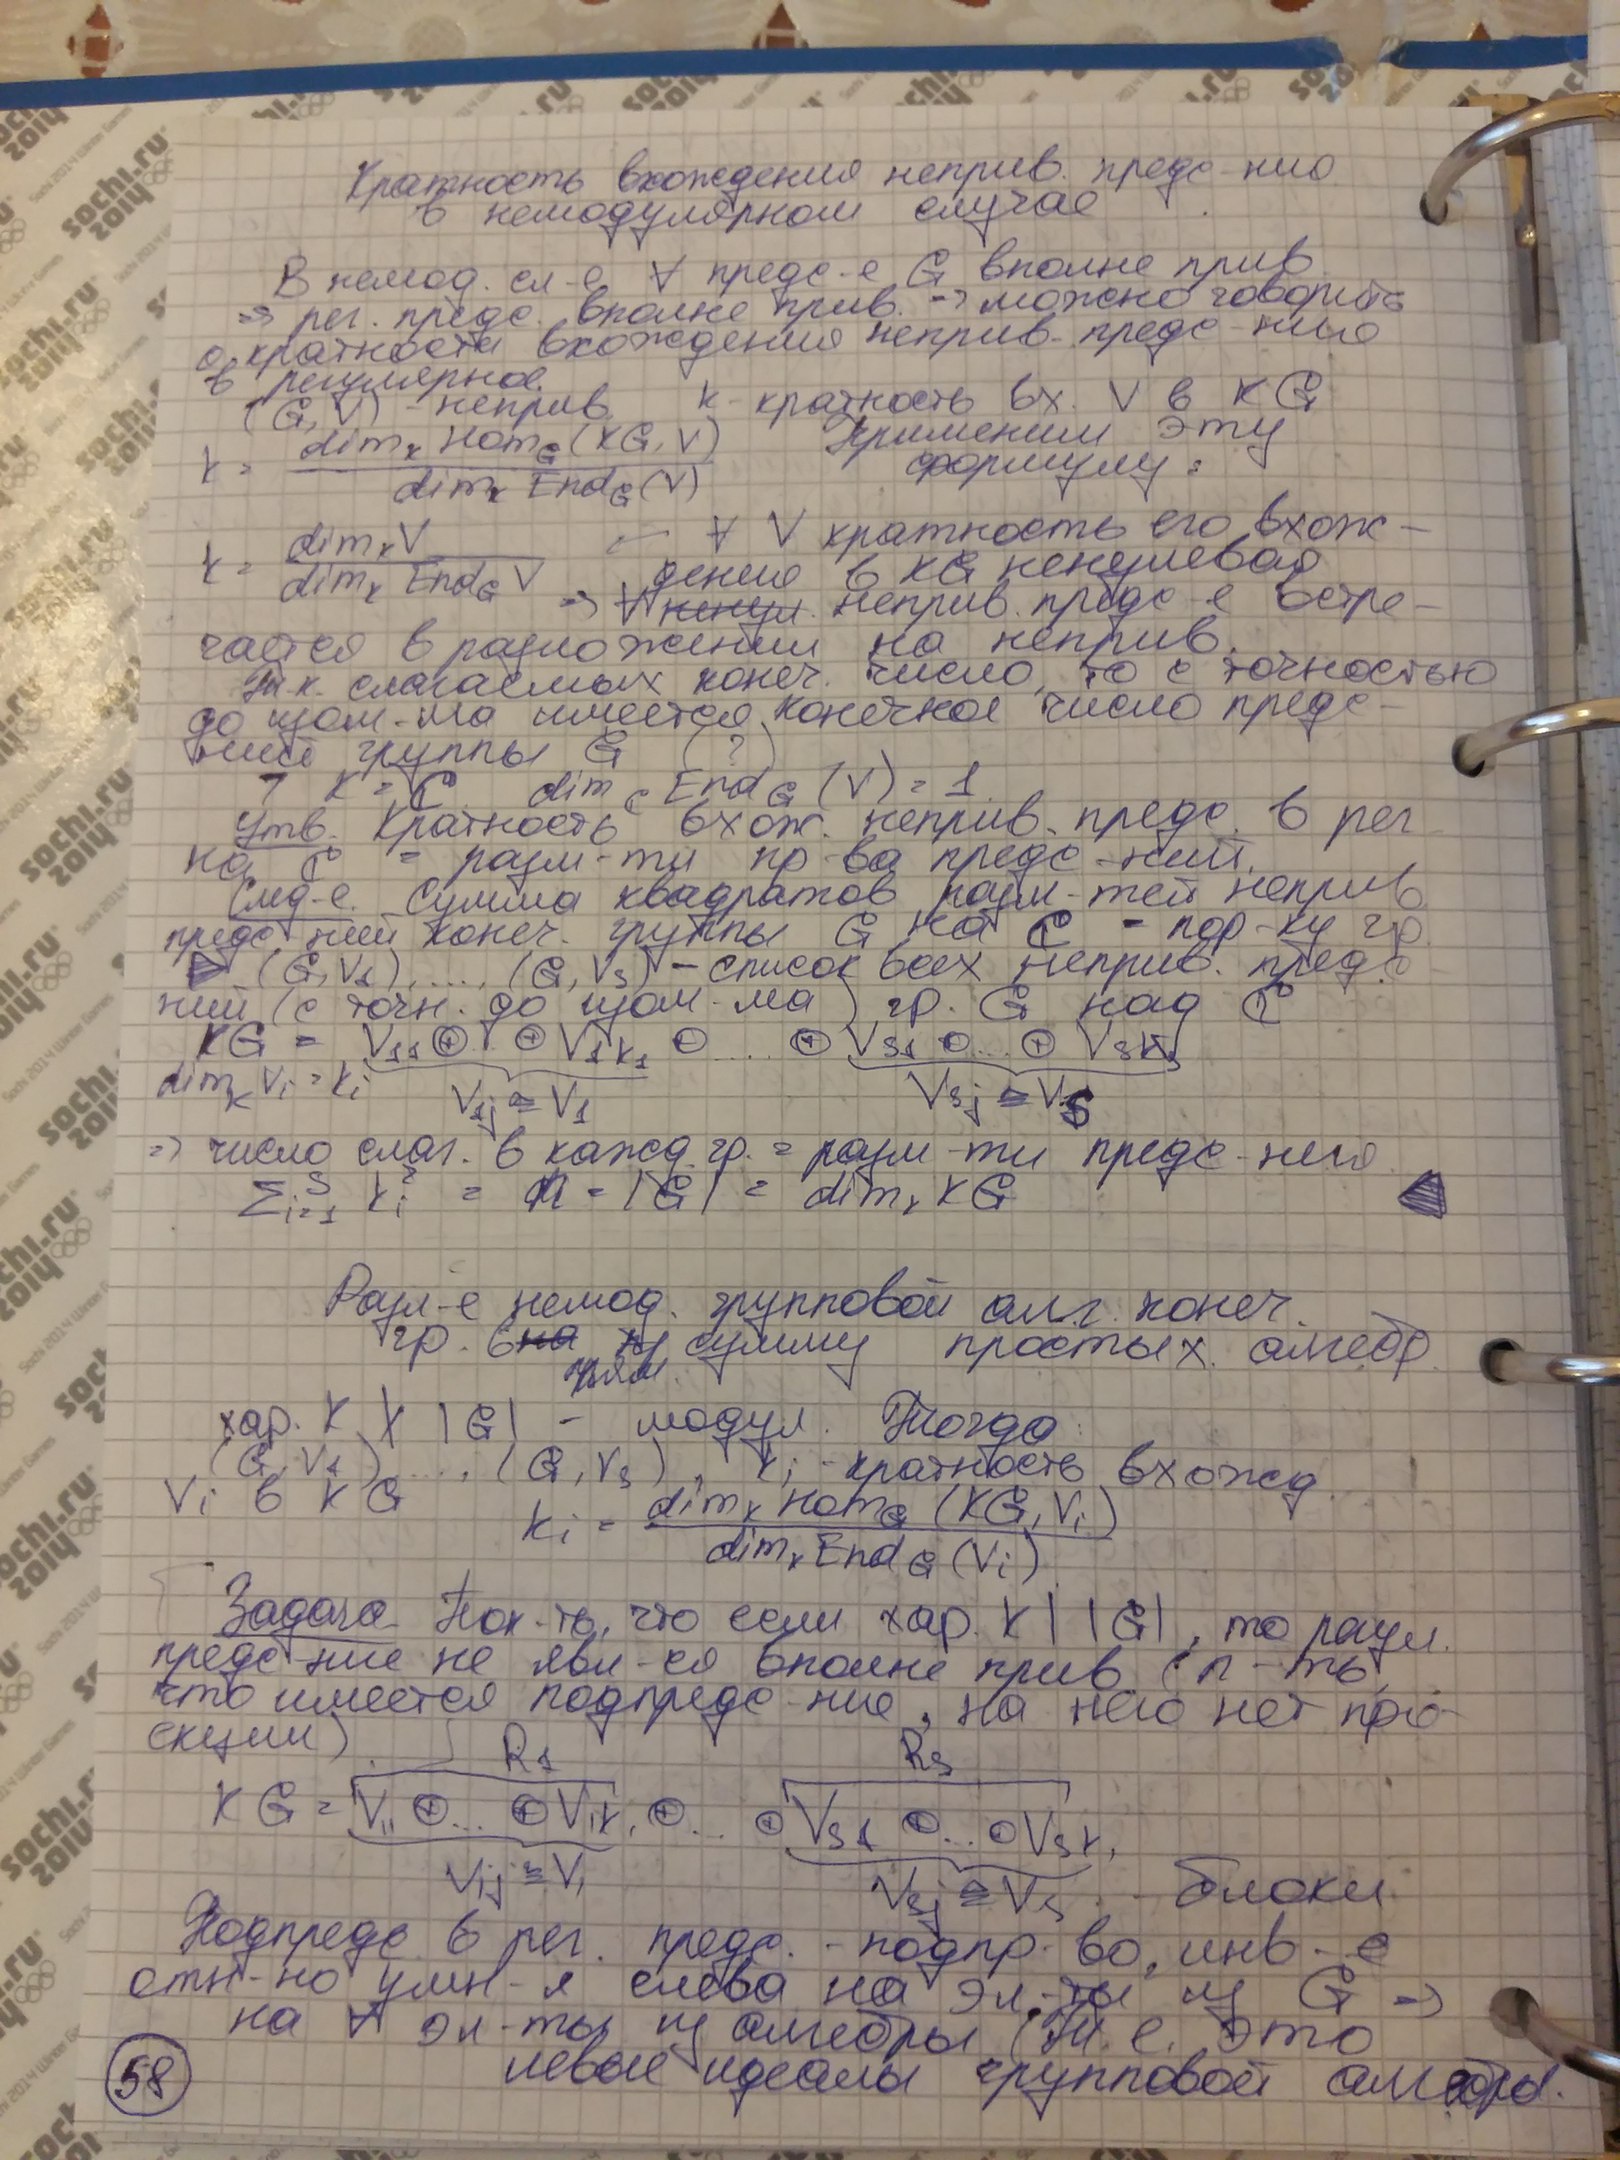 Кратность вхождения неприв. предс-ния
в немодулярном случае
В немод. сл-е ∀ предс-е G вполне прив.
⇒ рег. предс. вполне прив. ⇒ можно говорить
о кратности вхождения неприв. предс-ния
в регулярное.
(G, V) - неприв. k - кратность вх. V в KG
k = dim_K Hom_G (KG, V) / dim_K End_G (V) Применим эту
формулу:
k = dim_K V / dim_K End_G V ← ∀ V кратность его вхож-
дения в KG ненулевая
⇒ ∀ ненул. неприв. предс-е встре-
чается в разложении на неприв.
Т.к. слагаемых конеч. число, то с точностью
до изом-ма имеется конечное число предс-
ний группы G (?)
K = ℂ dim_ℂ End_G (V) = 1
Утв. Кратность вхож. неприв. предс. в рег.
на ℂ = разм-ти пр-ва предс-ний.
След-е. Сумма квадратов разм-тей неприв.
предс-ний конеч. группы G на ℂ = пор-ку гр.
▷ (G, V₁), ..., (G, Vₛ) - список всех неприв. предс-
ний (с точн. до изом-ма) гр. G над ℂ
KG = V₁₁ ⊕ ... ⊕ V₁ₖ₁ ⊕ ... ⊕ Vₛ₁ ⊕ ... ⊕ Vₛₖₛ
dim_K Vᵢ = kᵢ V₁ⱼ ≅ V₁ Vₛⱼ ≅ Vₛ
⇒ число слаг. в кажд. гр. = разм-ти предс-ния
Σᵢ₌₁ˢ kᵢ² = n = |G| = dim_K KG
Разл-е немод. групповой алг. конеч.
гр. в на сумму простых алгебр.
прям.
хар. K ∤ |G| - модул. Тогда:
(G, V₁), ..., (G, Vₛ), kᵢ - кратность вхожд.
Vᵢ в KG
kᵢ = dim_K Hom_G (KG, Vᵢ) / dim_K End_G (Vᵢ)
Задача. Пок-ть, что если хар. K | |G|, то разл.
предс-ние не явл-ся вполне прив. (п-ть,
что имеется подпредс-ние, на него нет про-
екции).
R₁ Rₛ
KG = V₁₁ ⊕ ... ⊕ V₁ₖ₁ ⊕ ... ⊕ Vₛ₁ ⊕ ... ⊕ Vₛₖₛ
V₁ⱼ ≅ V₁ Vₛⱼ ≅ Vₛ - блоки
Подпредс. в рег. предс. - подпр-во, инв-е
отн-но умн-я слева на эл-ты из G ⇒
на ∀ эл-ты из алгебры (т.е. это
левые идеалы групповой алгебры.
58